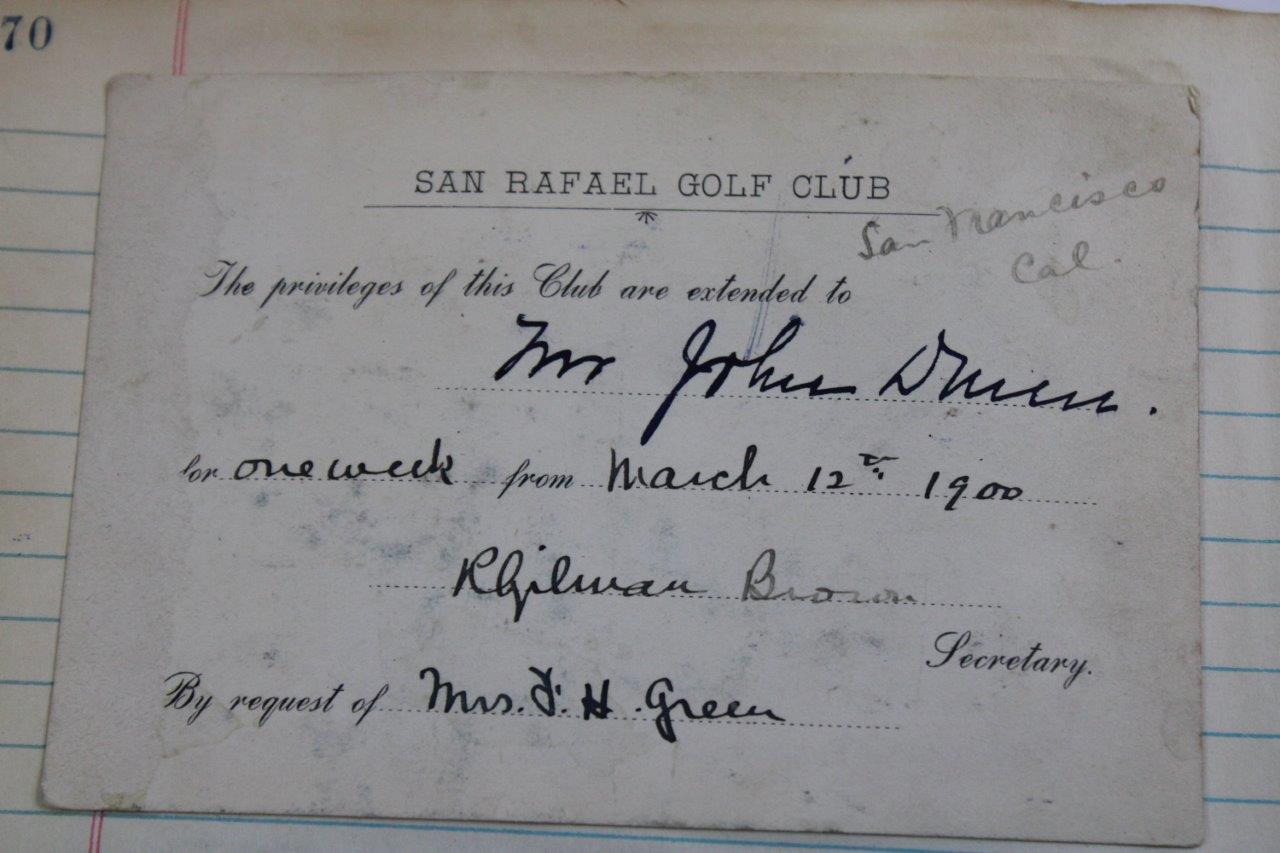 70
SAN RAFAEL GOLF CLUB
San Francisco
Cal.
The privileges of this Club are extended to
Mr John
for one week from March 12th 1900
R Gilman Brown
Secretary.
By request of Mrs. F. H. Green